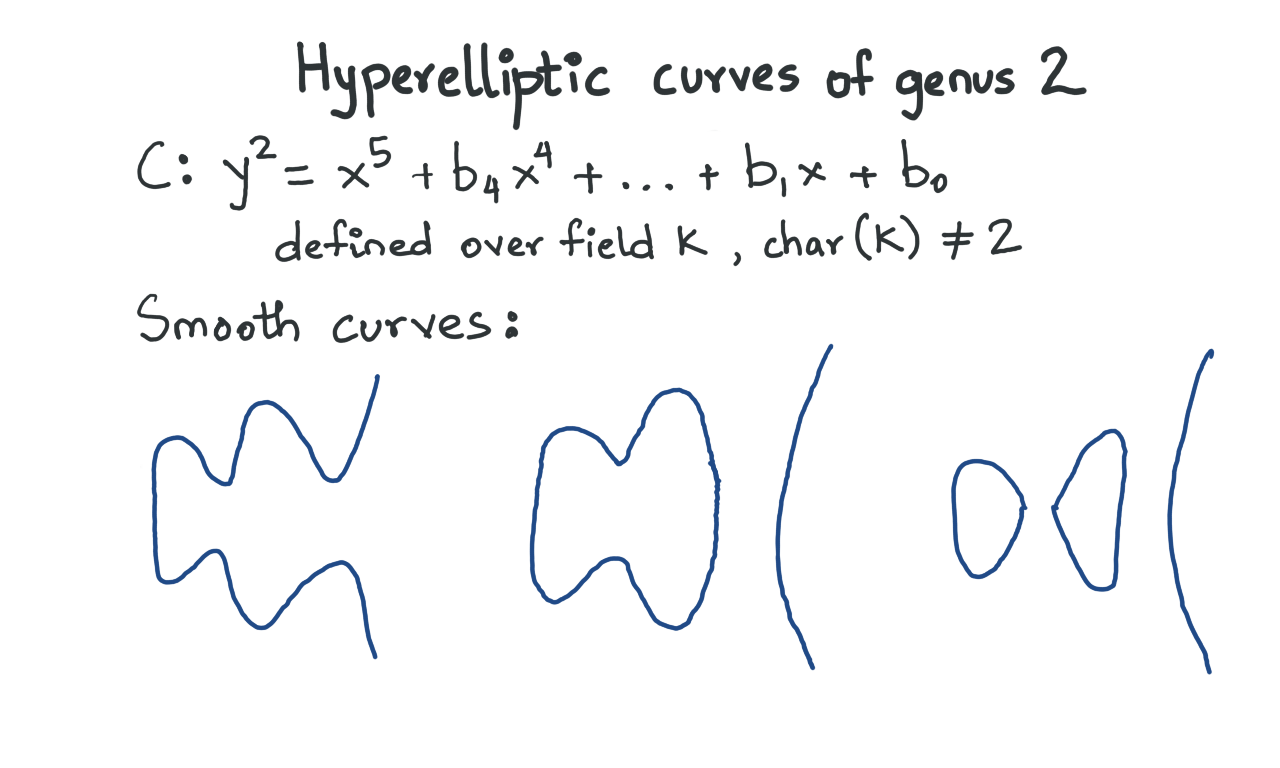 Hyperelliptic curves of genus 2
C: y² = x⁵ + b₄x⁴ + ... + b₁x + b₀
defined over field K , char(K) ≠ 2
Smooth curves: